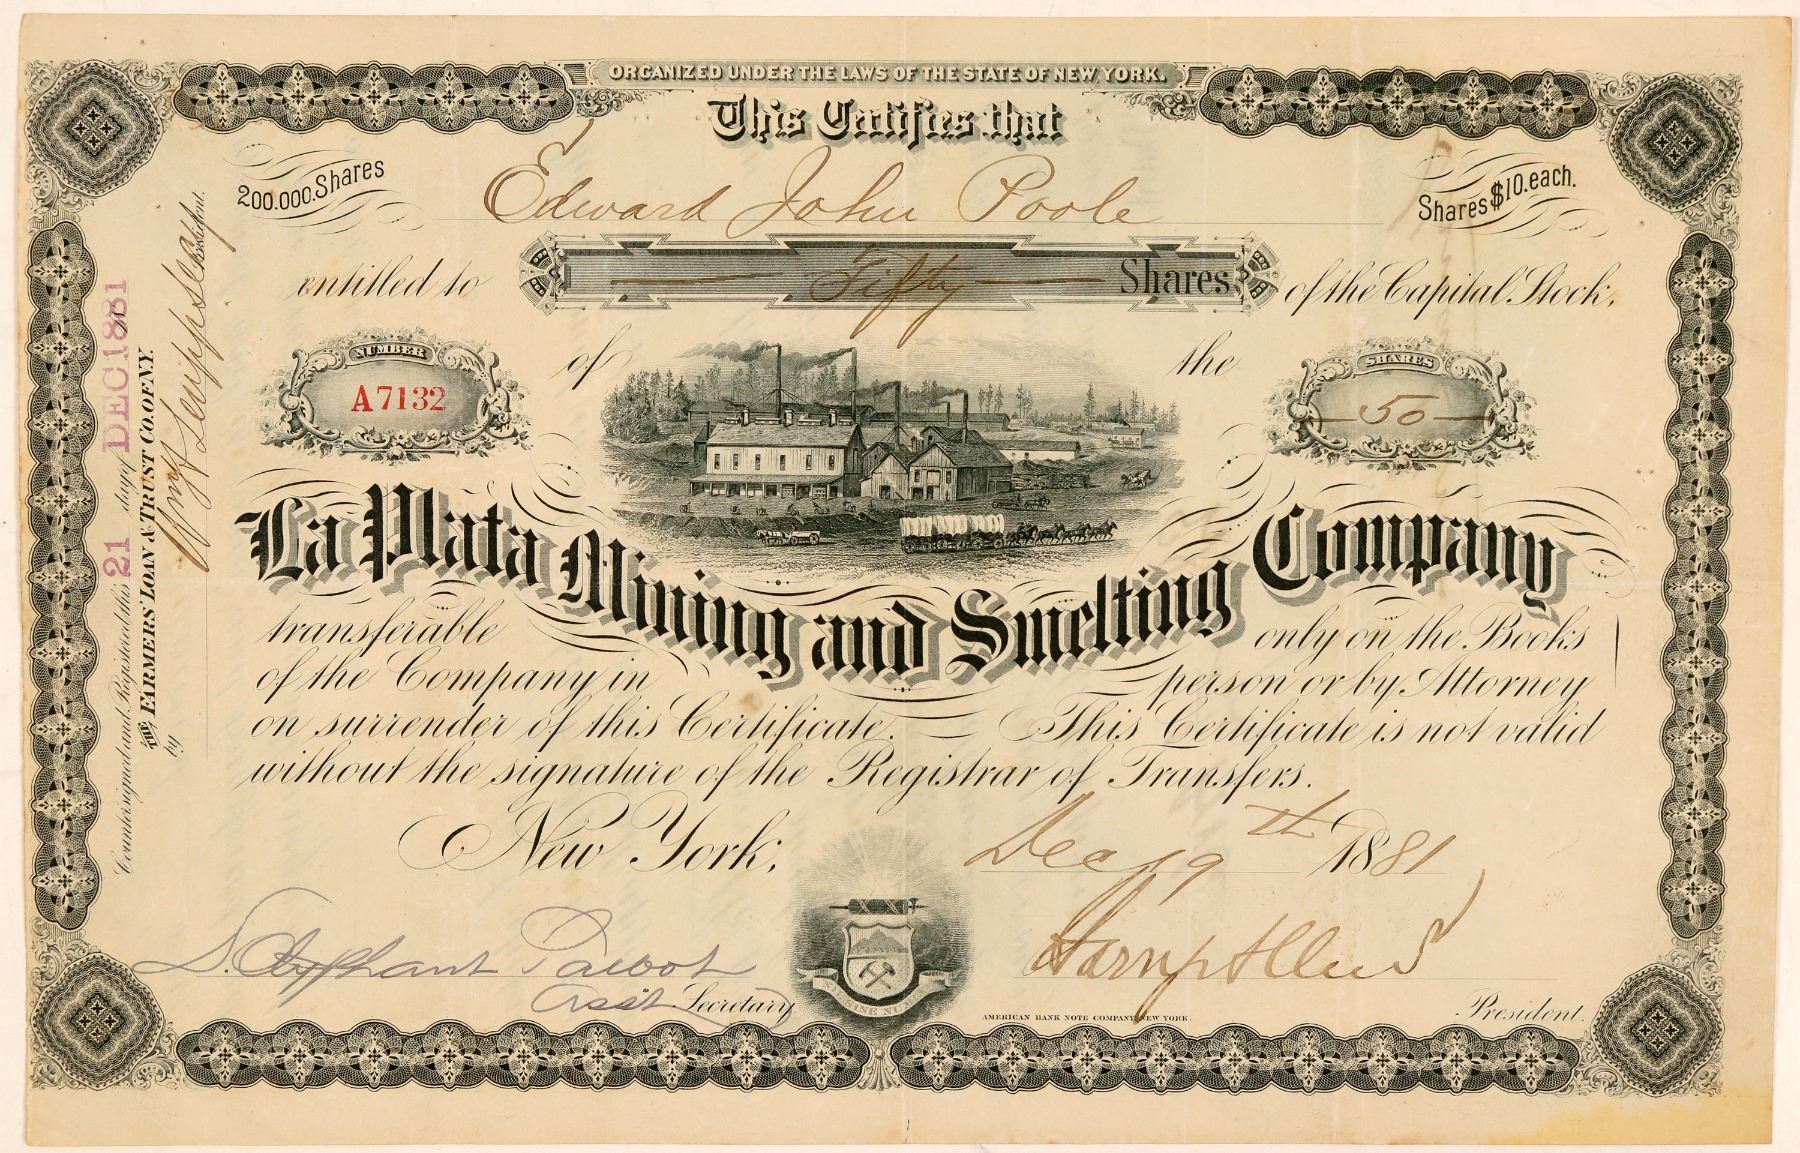 ORGANIZED UNDER THE LAWS OF THE STATE OF NEW YORK.
This Certifies that
200.000. Shares
Edward John Poole
Shares $10. each.
entitled to Fifty Shares of the Capital Stock,
NUMBER
A7132
of
the
SHARES
50
La Plata Mining and Smelting Company
transferable only on the Books
of the Company in person or by Attorney
on surrender of this Certificate. This Certificate is not valid
without the signature of the Registrar of Transfers.
New York, Dec 19th 1881
S. Olyphant Talbot
Asst Secretary
AMERICAN BANK NOTE COMPANY NEW YORK.
President.
Countersigned and Registered this 21 day of DEC 1881
THE FARMERS' LOAN & TRUST CO. OF N.Y.
by